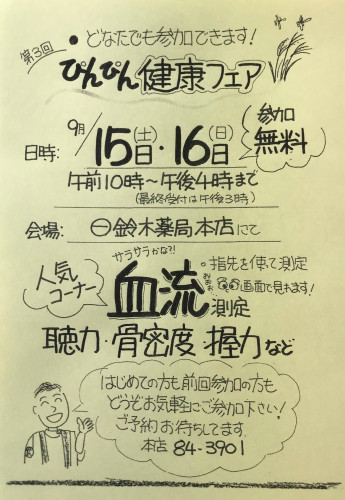 第3回
• どなたでも参加できます!
ぴんぴん健康フェア
日時: 9月/15(土)日・16(日)日
参加無料
午前10時〜午後4時まで
(最終受付は午後3時)
会場: ㊀鈴木薬局本店にて
人気コーナー
サラサラかな?!
血流測定
。指先を使って測定
画面で見れます!
聴力・骨密度・握力など
はじめての方も前回参加の方も
どうぞお気軽にご参加下さい!
ご予約お待ちしてます。
本店 84-3901